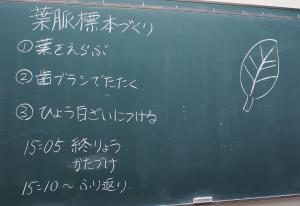 葉脈標本づくり
①葉をえらぶ
②歯ブラシでたたく
③ひょう白ざいにつける
15:05 終りょう
かたづけ
15:10～ふり返り